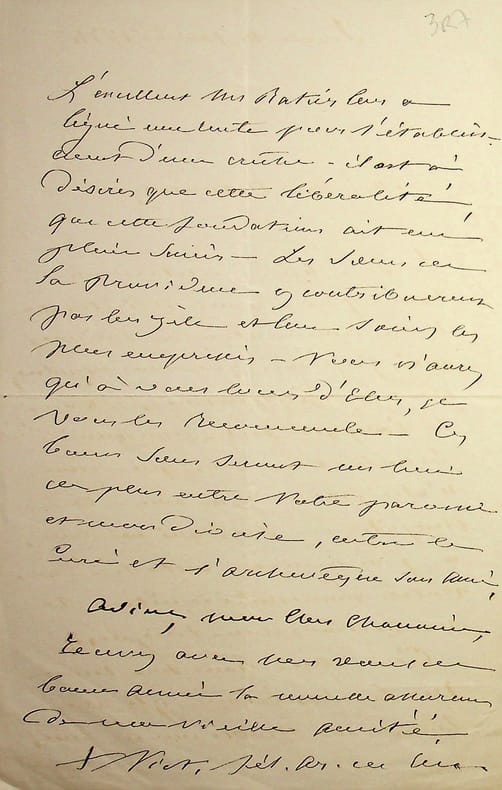 3R7
L'excellent Mr Ratier leur a
légué une rente pour l'établisse-
ment d'une crèche – il est à
désirer que cette libéralité,
que cette fondation ait un
plein succès – Les Sœurs de
la Providence y contribueront
par leur zèle et leurs soins les
plus empressés – Vous n'aurez
qu'à vous louer d'Elles, je
vous les recommande – Ces
bonnes Sœurs seront un lien
de plus entre votre paroisse
et mon Diocèse, entre le
Curé et l'archevêque son ami,
Adieu, mon cher Chanoine,
Recevez avec mes vœux de
bonne année la nouvelle assurance
de ma vieille amitié
+ Vict. fél. ar. de